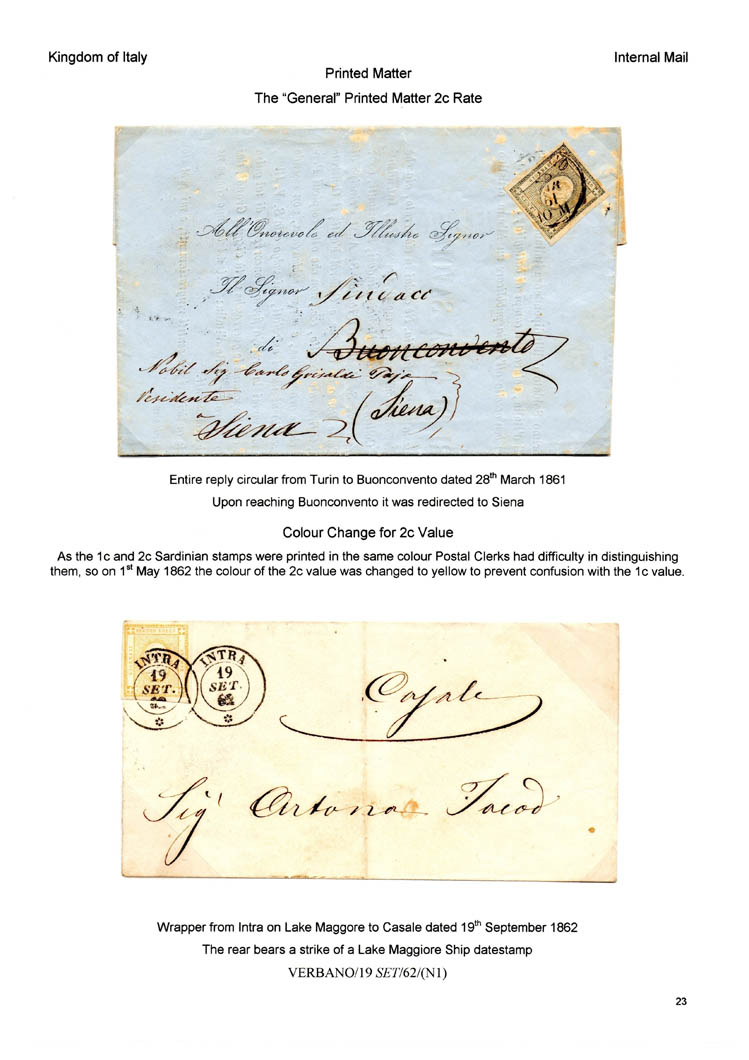 Kingdom of Italy
Internal Mail
Printed Matter
The “General” Printed Matter 2c Rate
61
10 M
All'Onorevole ed Illustre Signor
Il Signor Sindaco
di Buonconvento
Nobil Sig Carlo Grisaldi Taja
Residente
a Siena (Siena)
Entire reply circular from Turin to Buonconvento dated 28th March 1861
Upon reaching Buonconvento it was redirected to Siena
Colour Change for 2c Value
As the 1c and 2c Sardinian stamps were printed in the same colour Postal Clerks had difficulty in distinguishing
them, so on 1st May 1862 the colour of the 2c value was changed to yellow to prevent confusion with the 1c value.
INTRA
19
SET.
INTRA
19
SET.
62
Casale
Sigr Artona Jacod
Wrapper from Intra on Lake Maggore to Casale dated 19th September 1862
The rear bears a strike of a Lake Maggiore Ship datestamp
VERBANO/19 SET/62/(N1)
23